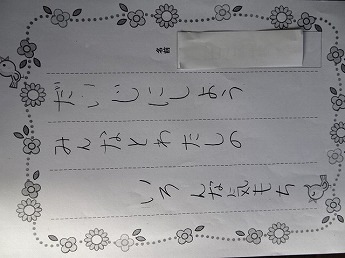 名前
だいじにしよう
みんなとわたしの
いろんな気もち